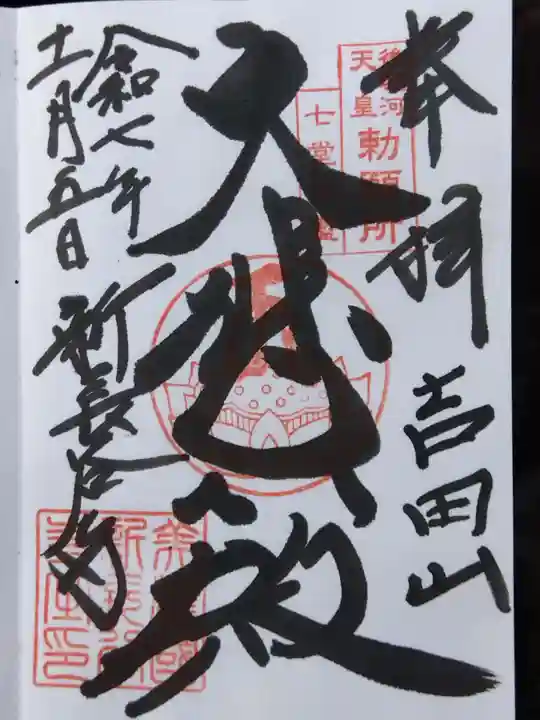 奉拝
吉田山
後堀河
天皇
勅願所
七堂
大悲殿
令和七年
十一月五日
新長谷寺